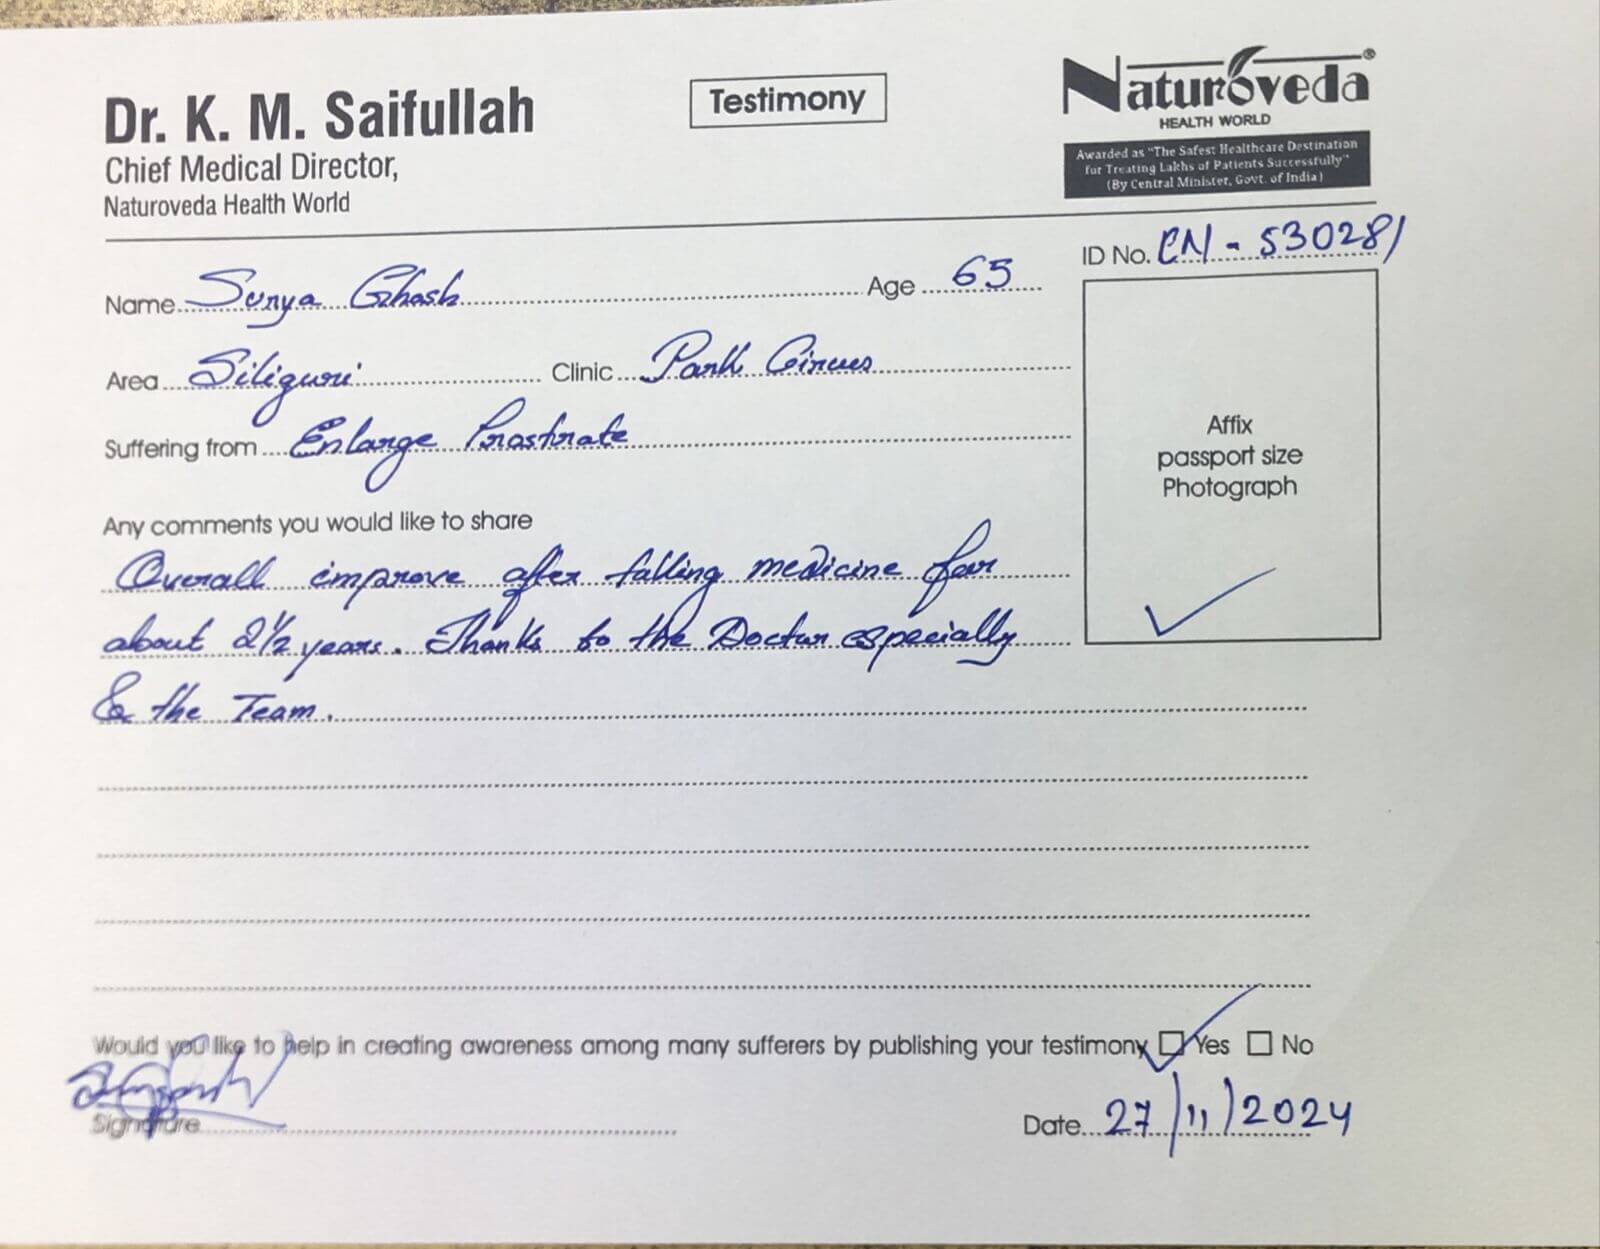 Dr. K. M. Saifullah
Chief Medical Director,
Naturoveda Health World
Testimony
Naturoveda®
HEALTH WORLD
Awarded as "The Safest Healthcare Destination
for Treating Lakhs of Patients Successfully"
(By Central Minister, Govt. of India)
ID No. CN - 530281
Name Surya Ghosh Age 65
Area Siliguri Clinic Park Circus
Suffering from Enlarge Prostrate
Affix
passport size
Photograph
Any comments you would like to share
Overall improve after talking medicine for
about 2½ years. Thanks to the Doctor especially
& the Team.
Would you like to help in creating awareness among many sufferers by publishing your testimony Yes No
Signature
Date 27/11/2024